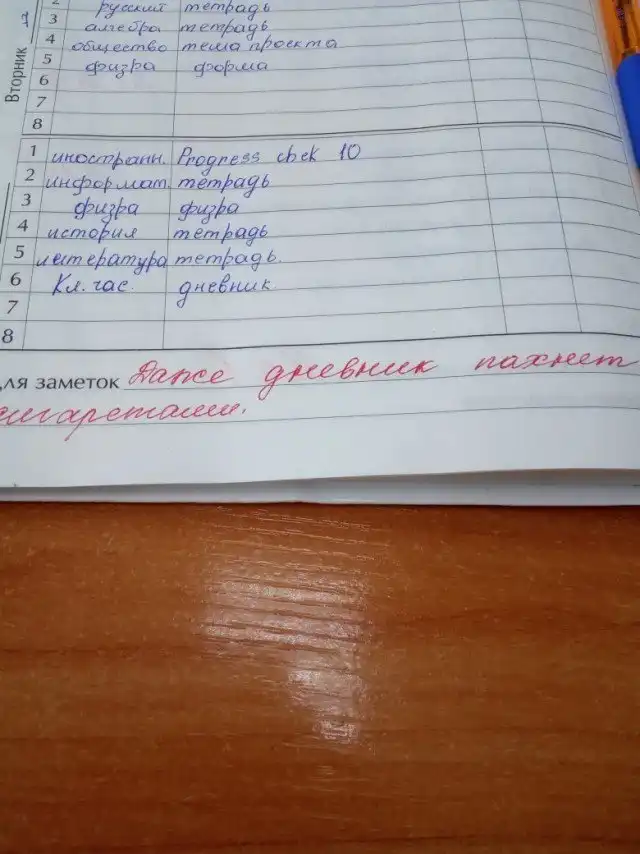 2 русский тетрадь
3 алгебра тетрадь
4 общество тема проекта
5 физра форма
6
7
8
Вторник
1 иностранн. Progress chek 10
2 информат. тетрадь
3 физра физра
4 история тетрадь
5 литература тетрадь.
6 Кл. час. дневник
7
8
для заметок Даже дневник пахнет
сигаретами.